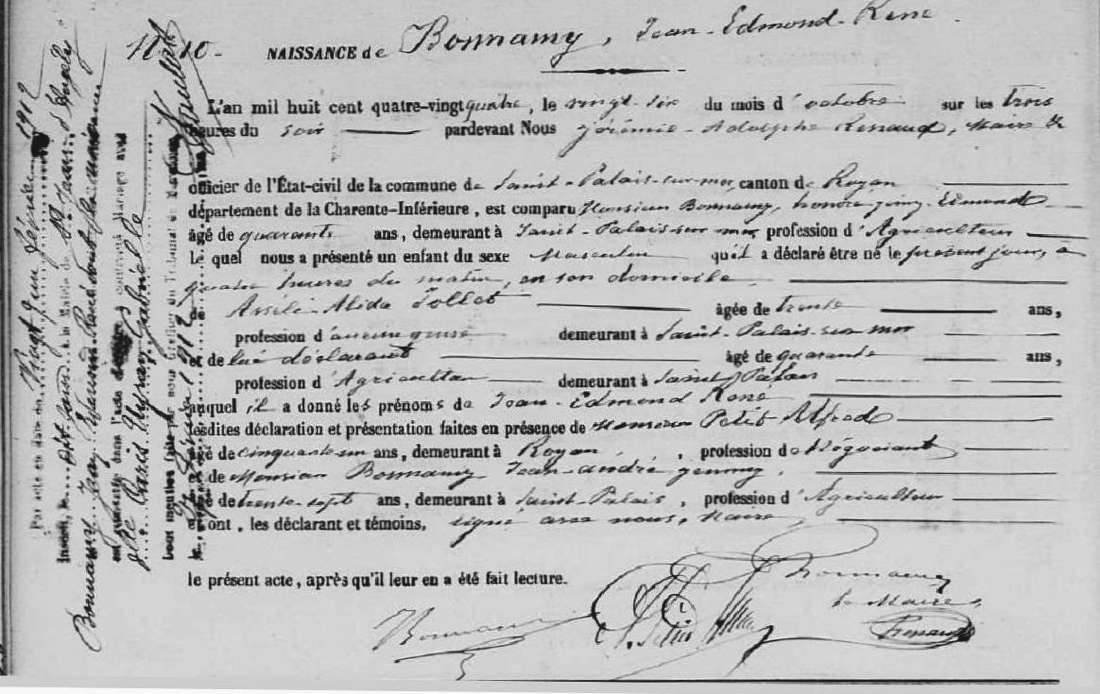 N° 10. NAISSANCE de Bonnamy, Jean-Edmond-René.
L'an mil huit cent quatre-vingt quatre, le vingt-six du mois d'octobre sur les trois
heures du soir pardevant Nous Jérémie-Adolphe Renaud, Maire &
officier de l'État-civil de la commune de Saint-Palais-sur-mer, canton de Royan
département de la Charente-Inférieure, est comparu Monsieur Bonnamy, Edmond
âgé de quarante ans, demeurant à Saint-Palais-sur mer profession d'Agriculteur
le quel nous a présenté un enfant du sexe Masculin qu'il a déclaré être né le présent jour, à
quatre heures du matin, en son domicile
de Alida Jollet agée de trente ans,
profession d'aucune demeurant à Saint-Palais-sur mer
et de lui déclarant âgé de quarante ans,
profession d'Agriculteur demeurant à Saint Palais
auquel il a donné les prénoms de Jean-Edmond René
lesdites déclaration et présentation faites en présence de Monsieur Petit Alfred
âgé de cinquante un ans, demeurant à Royan, profession de Négociant
et de Monsieur Bonnamy Jean-andré
âgé de trente-sept ans, demeurant à Saint-Palais, profession d'Agriculteur
et ont, les déclarant et témoins, signé avec nous, Maire,
le présent acte, après qu'il leur en a été fait lecture.
Bonnamy
Petit
Bonnamy
le Maire,
Renaud
Par acte en date du Vingt Février 1912
à la Mairie de St Jean d'Angély
Bonnamy Jean Edmond René
dans l'acte contracté Mariage avec
Delle Paris Gabrielle